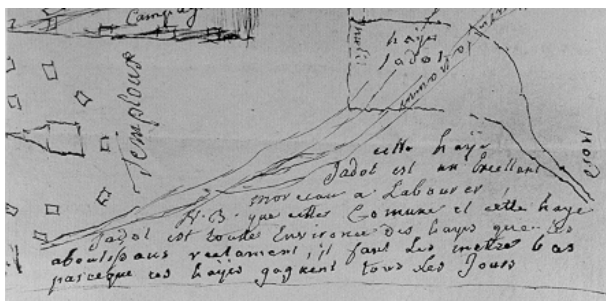 Campag
haÿe
Jadot
Temploux
cette haÿe
Jadot est un Excellent
morceau a Labourer,
N.B. que cette Comune et cette haye
Jadot est toutte Environée des hayes que
aboutissans, il faut Les mettre bas
parceque ces haÿes gagnent tous Les Jours